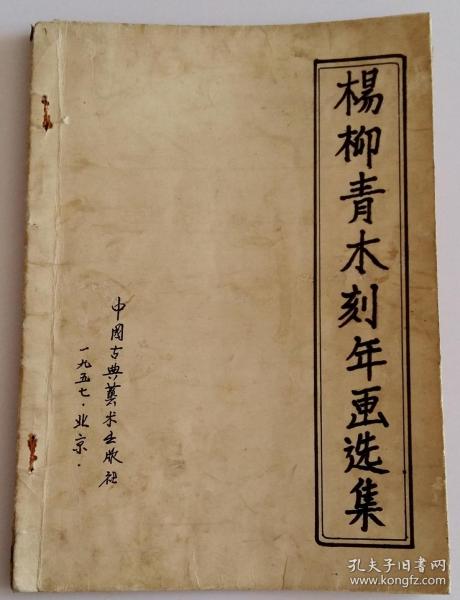 楊柳青木刻年画选集
中國古典藝术出版社
一九五七·北京·
孔夫子旧书网
www.kongfz.com